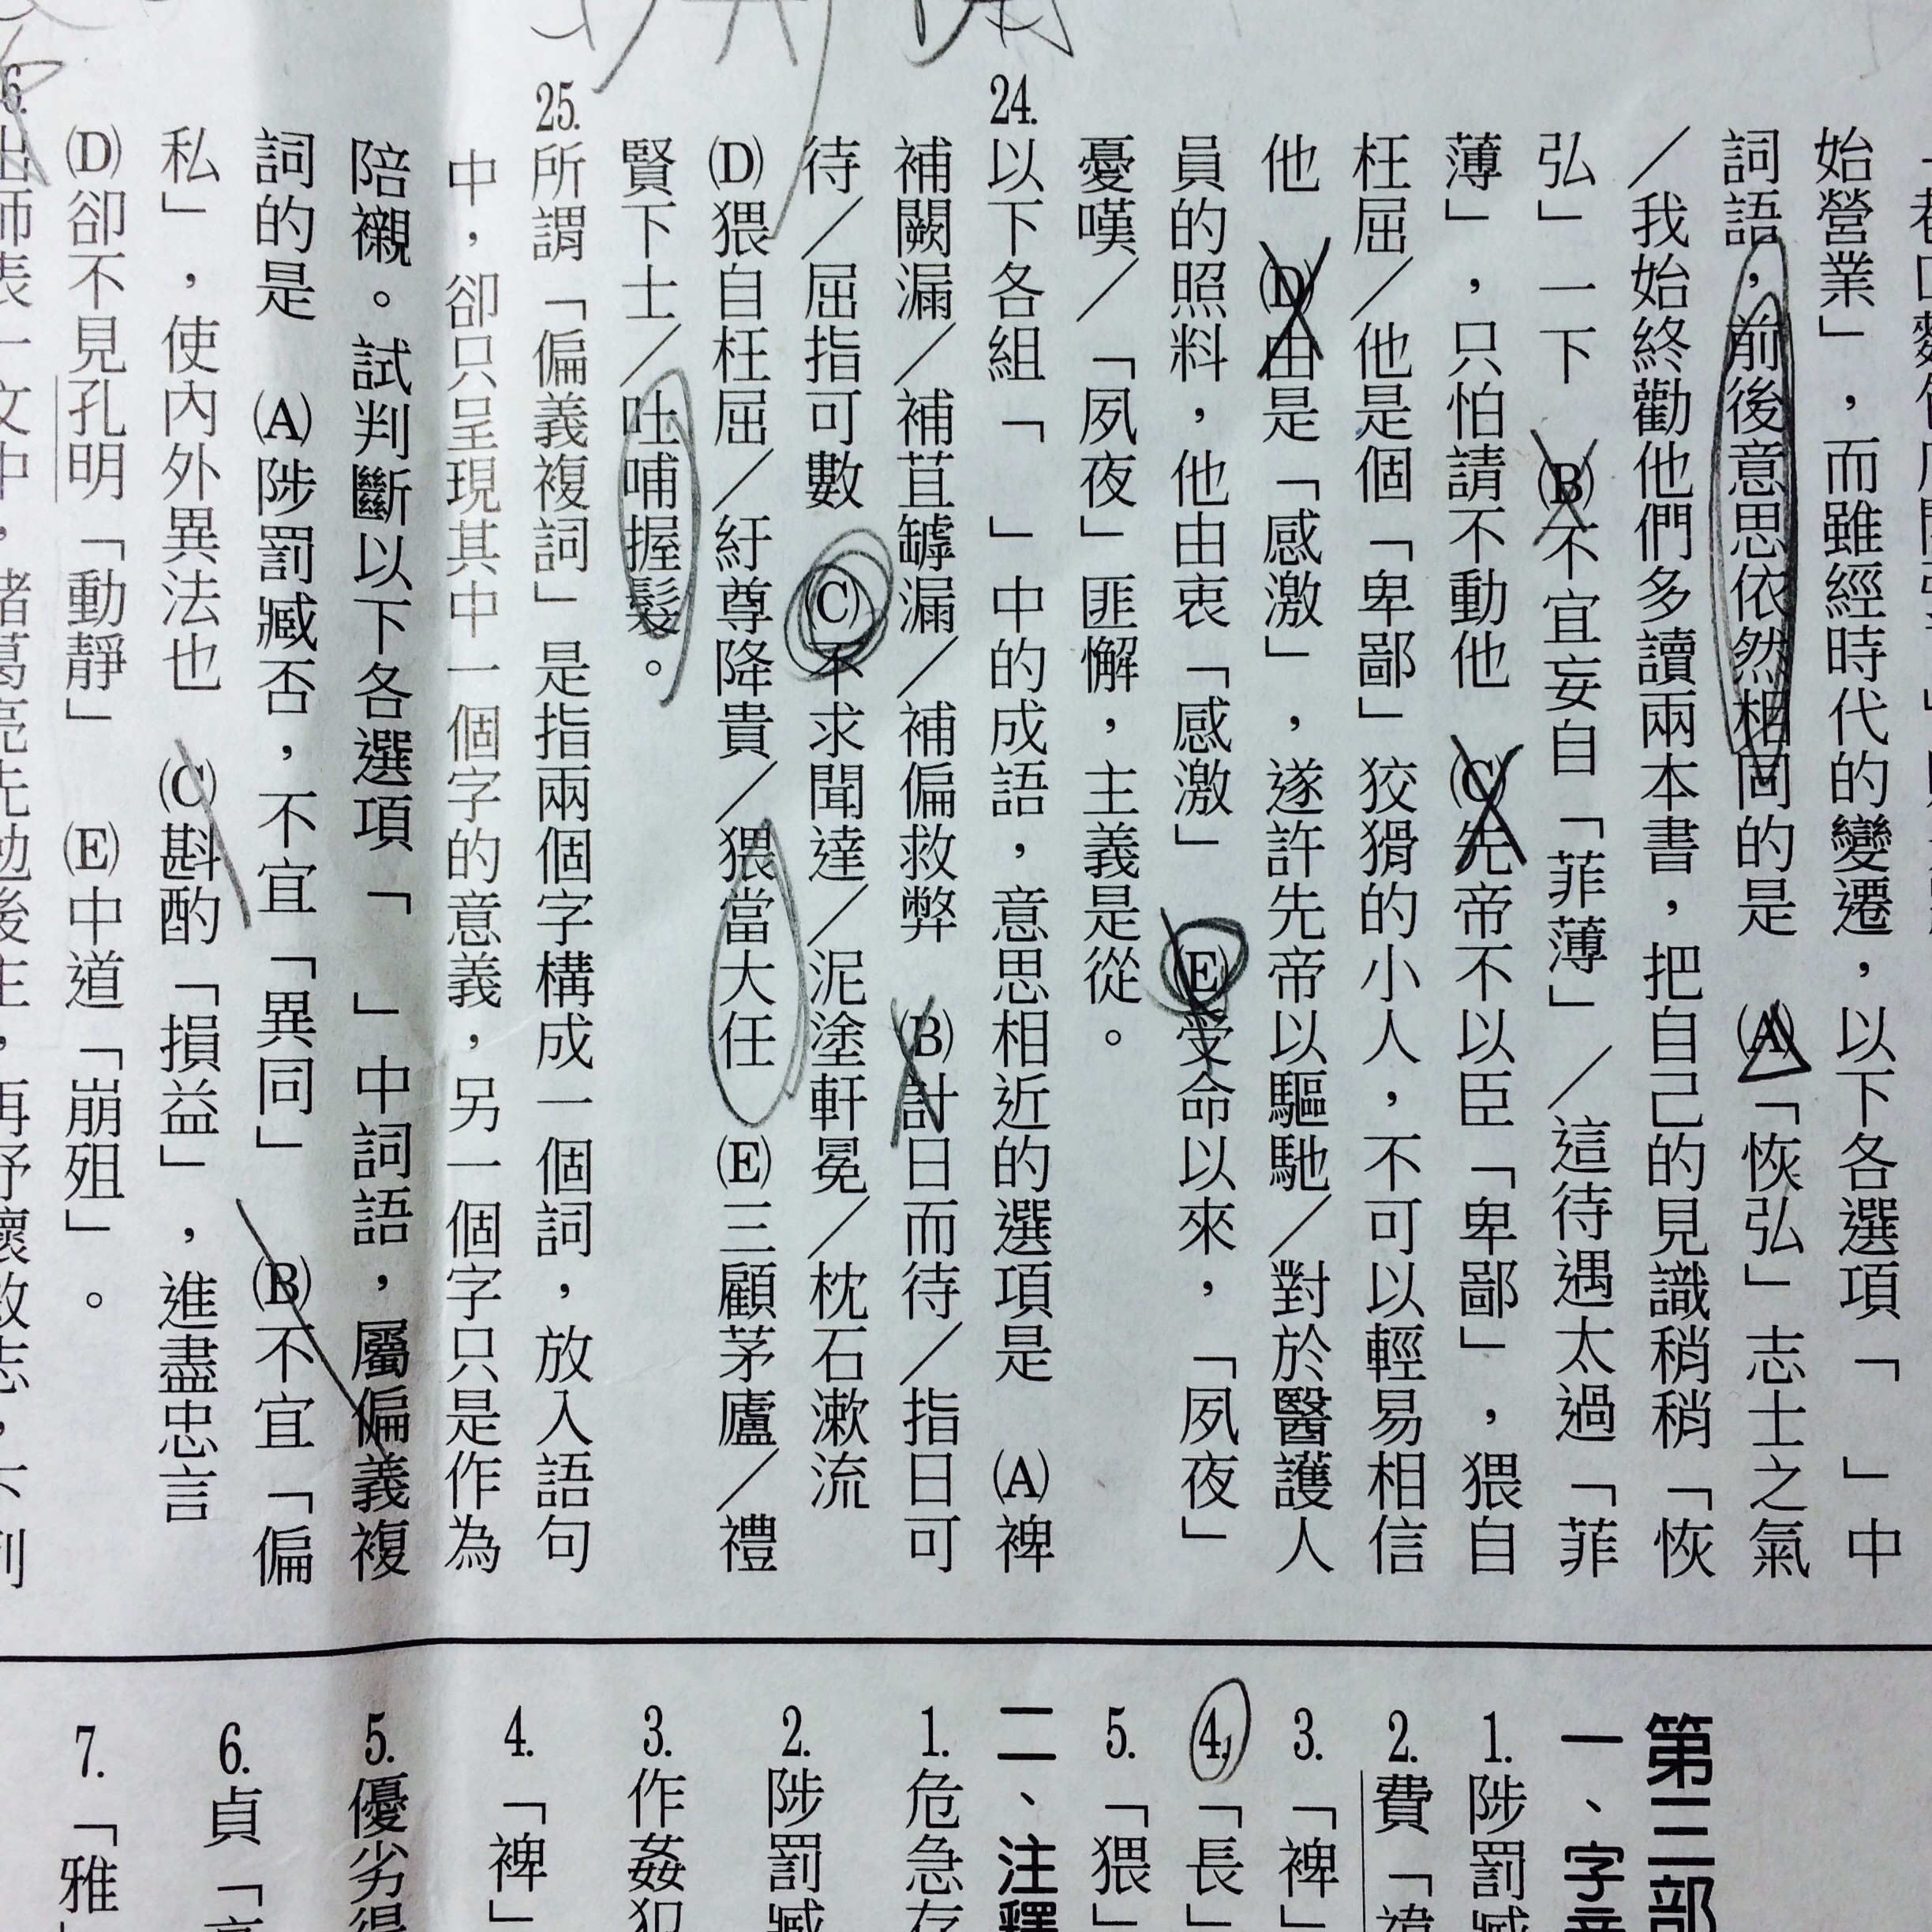 始營業」,而雖經時代的變遷,以下各選項「 」中
詞語,前後意思依然相同的是 (A)「恢弘」志士之氣
/我始終勸他們多讀兩本書,把自己的見識稍稍「恢
弘」一下 (B)不宜妄自「菲薄」/這待遇太過「菲
薄」,只怕請不動他 (C)先帝不以臣「卑鄙」,猥自
枉屈/他是個「卑鄙」狡猾的小人,不可以輕易相信
他 (D)由是「感激」,遂許先帝以驅馳/對於醫護人
員的照料,他由衷「感激」 (E)受命以來,「夙夜」
憂嘆/「夙夜」匪懈,主義是從。
24.以下各組「 」中的成語,意思相近的選項是 (A)裨
補闕漏/補苴罅漏/補偏救弊 (B)計日而待/指日可
待/屈指可數 (C)不求聞達/泥塗軒冕/枕石漱流
(D)猥自枉屈/紆尊降貴/猥當大任 (E)三顧茅廬/禮
賢下士/吐哺握髮。
25.所謂「偏義複詞」是指兩個字構成一個詞,放入語句
中,卻只呈現其中一個字的意義,另一個字只是作為
陪襯。試判斷以下各選項「 」中詞語,屬偏義複
詞的是 (A)陟罰臧否,不宜「異同」 (B)不宜「偏
私」,使內外異法也 (C)斟酌「損益」,進盡忠言
(D)卻不見孔明「動靜」 (E)中道「崩殂」。
第三部
一、字音
1.陟罰臧
2.費「禕
3.「裨」
4.「長」
5.「猥」
二、注釋
1.危急存
2.陟罰臧
3.作姦犯
4.「裨」
5.優劣得
6.貞「亮
7.「雅」